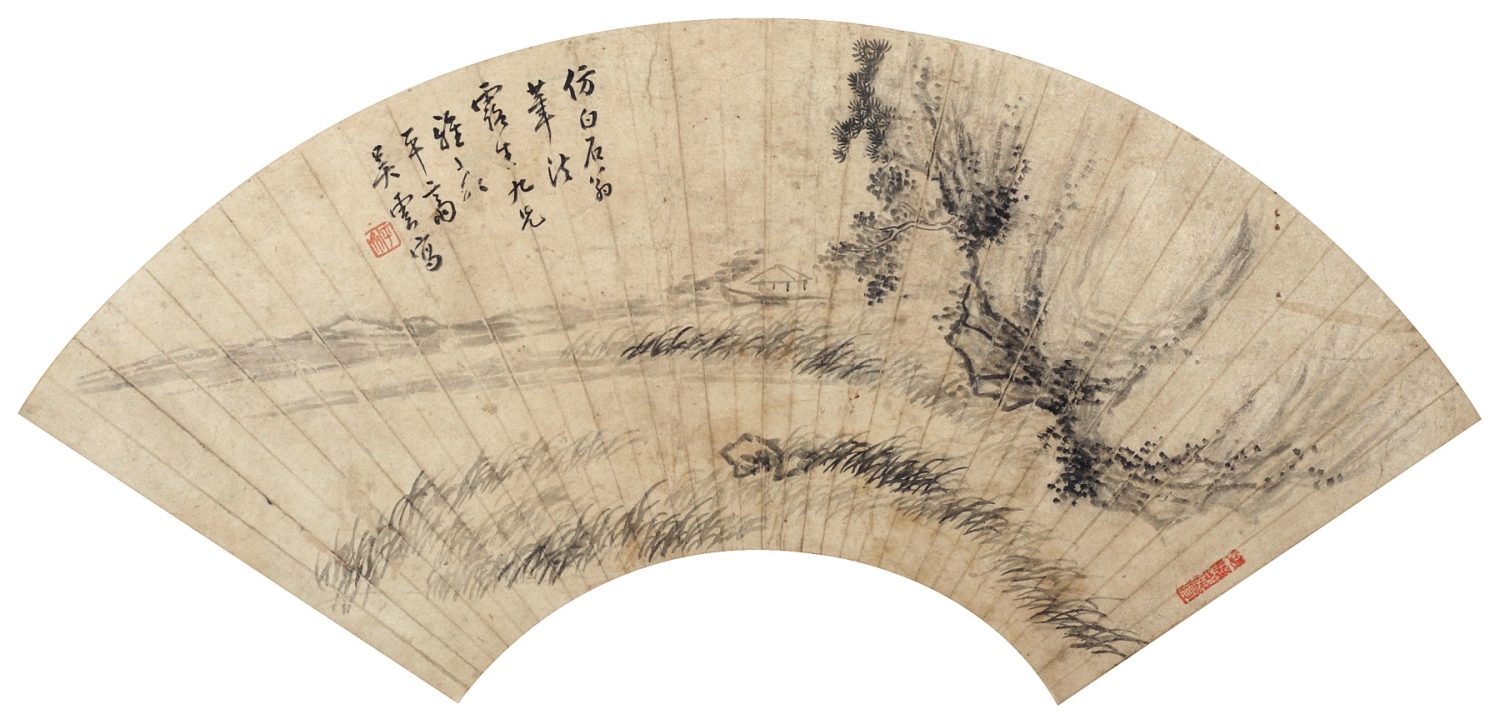 仿白石翁
筆法
露生九兄
雅
平齋
吳雲寫